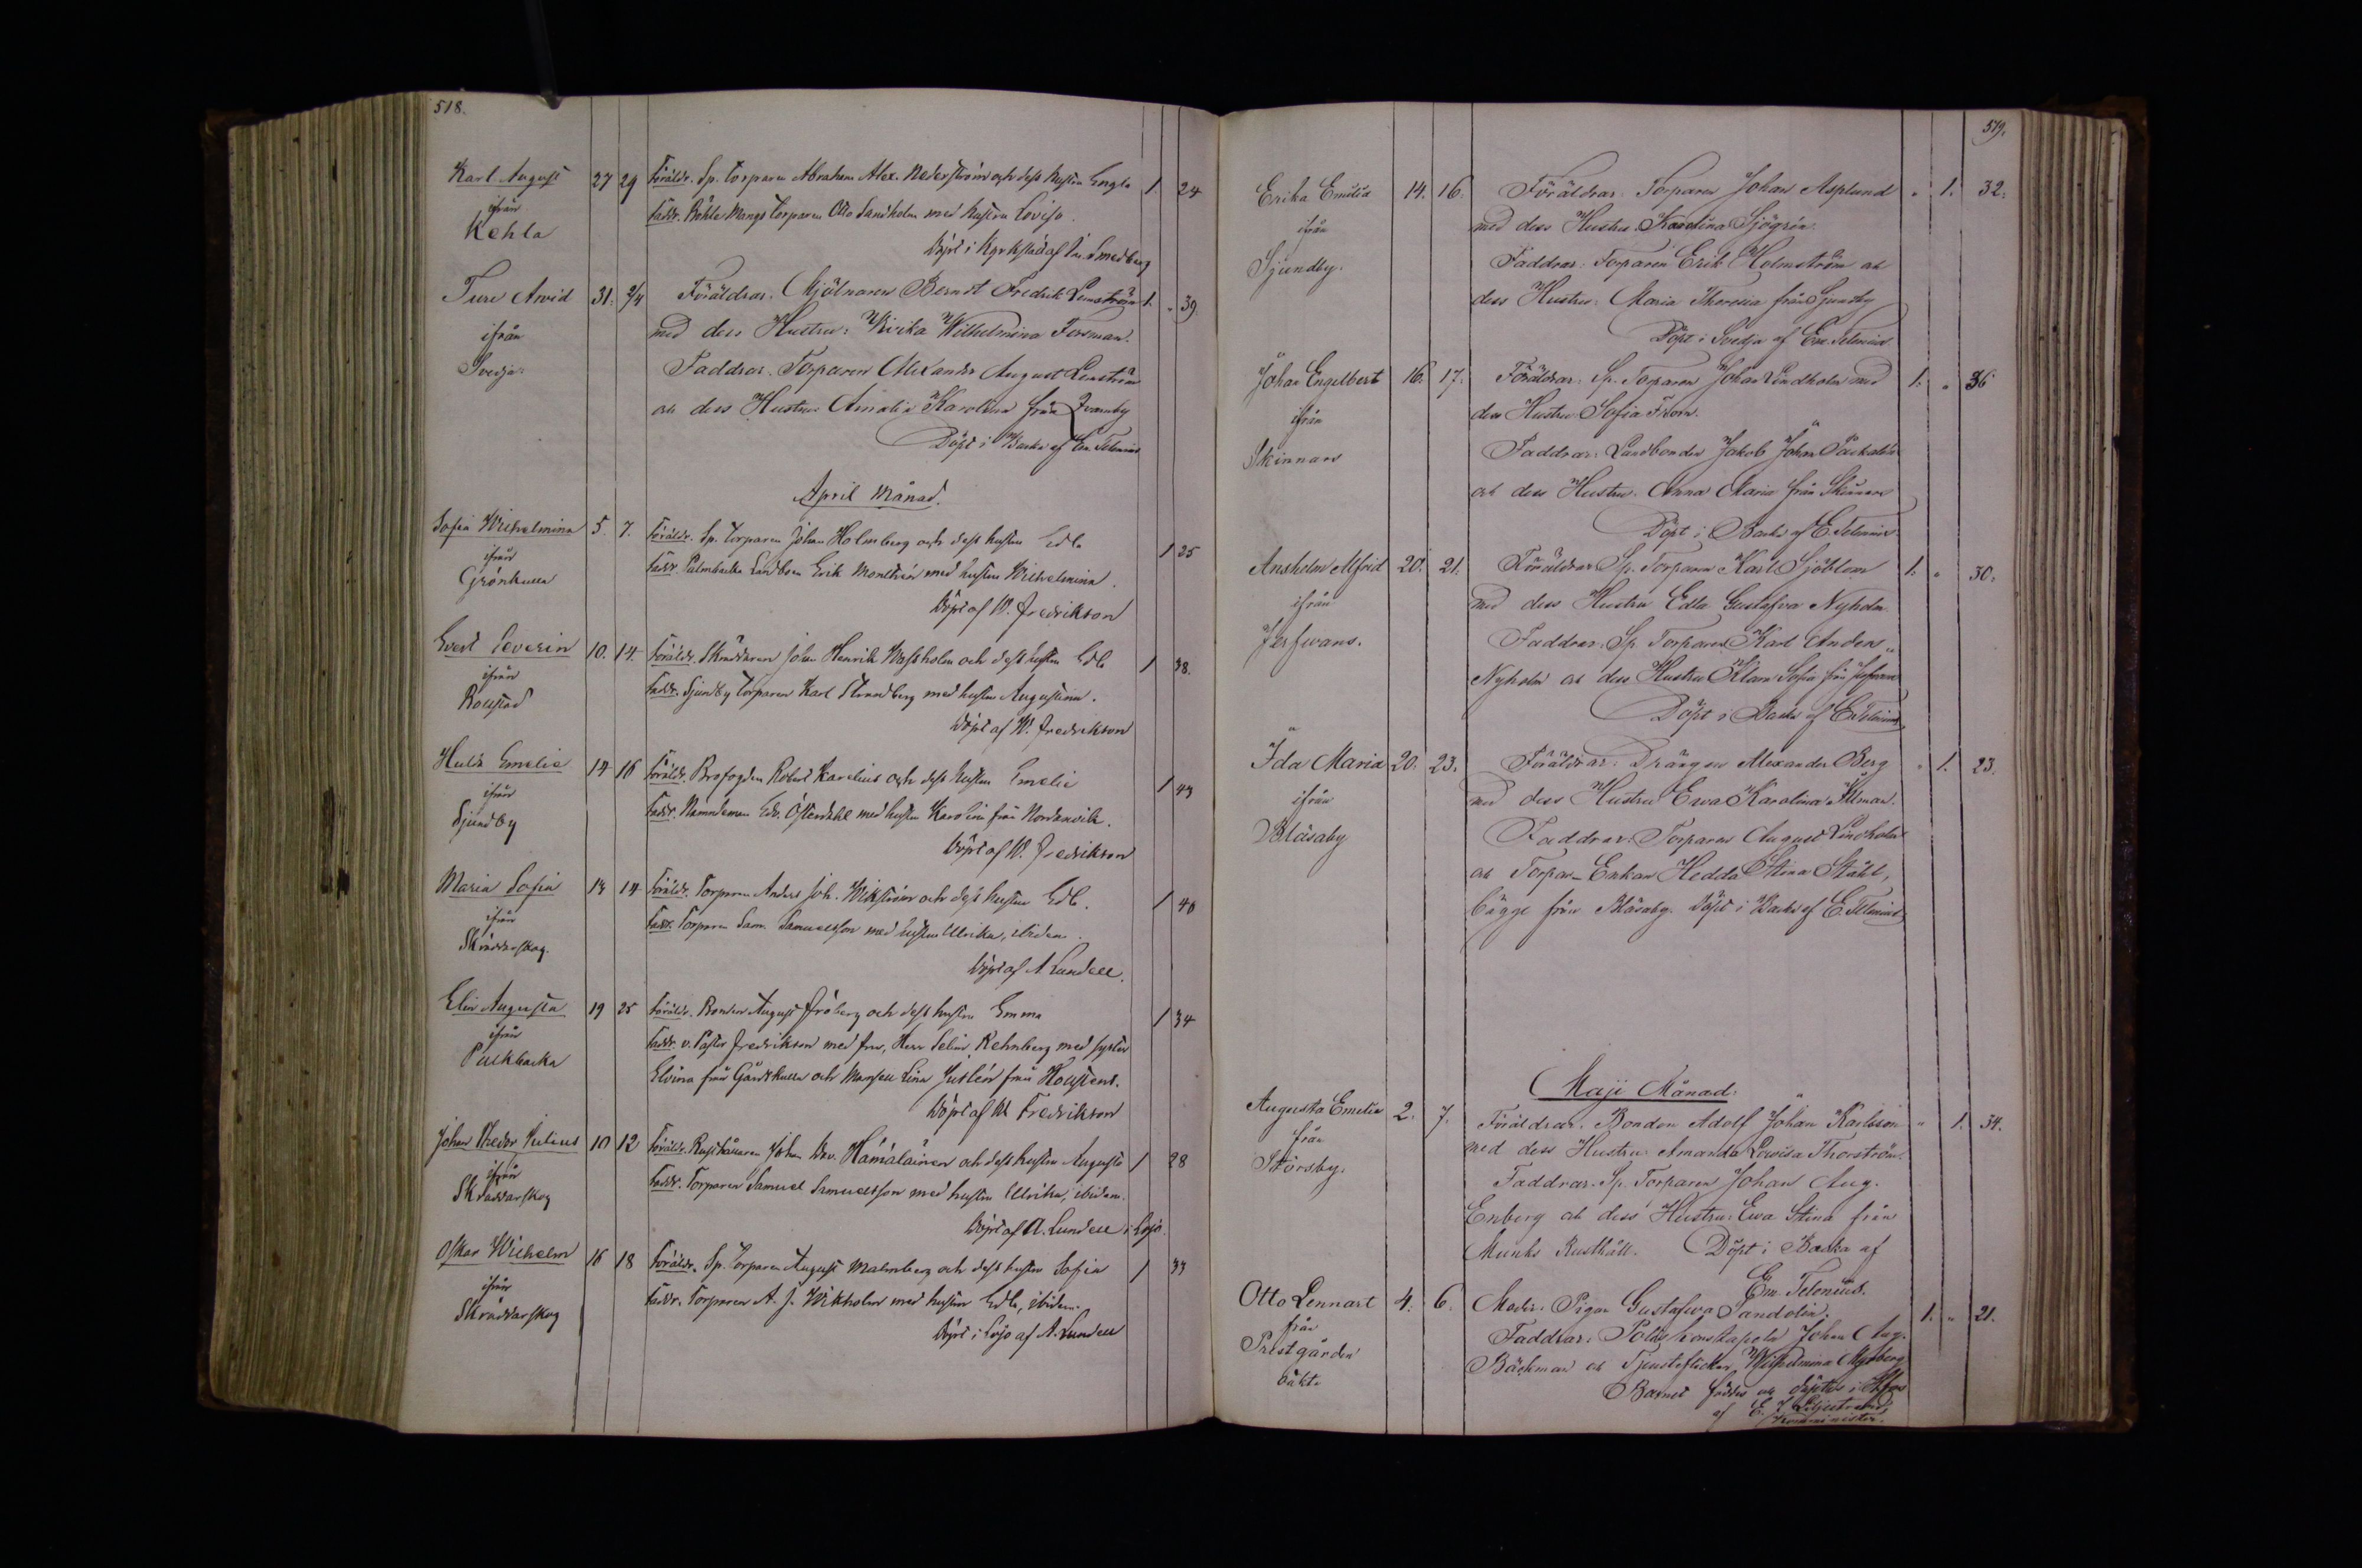 518.
Karl August 27 29 Föräldr. Sp. torparen Abraham Alex. Nederström och dess hustru Engla 1 24
ifrån
Faddr. Böhle Mangs torparen Otto Sandholm med hustru Lovisa.
Kehla
Döpt i Kyrkstad af Smedberg
Ture Arvid 31. 2/4 Föräldrar. Mjölnaren Berndt Fredrik Lenström 1. " 39.
med dess Hustru: Wilhelmina Forsman.
ifrån
Svedja:
Faddrar. Torparen Alexander August Lenström
och dess Hustru Amalia Karolina från Qvarnby
Döpt i Backa af Em. Telenius
April Månad.
Sofia Wilhelmina 5. 7. Föräldr. Sp. torparen Johan Holmberg och dess hustru Edla 1 25
ifrån
Faddr. Palmbacka Landbon Erik Monthén med hustru Wilhelmina.
Grönkulla
Döpt af W. Fredrikson
Evert Severin 10. 14. Föräldr. Skräddaren Johan Henrik Wassholm och dess hustru Edla 1 38.
ifrån
Faddr. Sjundby torparen Karl Strandberg med hustru Augustina.
Döpt af W. Fredrikson
Hulda Emelie 14 16 Föräldr. Brofogden Robert Karelius och dess hustru Emelie 1 43
ifrån
Faddr. Nämndeman Edv. Österdahl med hustru Karolina från Nordanvik.
Sjundby
Döpt af W. Fredrikson
Maria Sofia 13 14 Föräldr. Torparen Anders Joh. Wikström och dess hustru Edla. 1 40
ifrån
Faddr. Torparen Sam. Samuelsson med hustru Ulrika, ibidem.
Skräddarskog.
Döpt af A. Lundell.
Elin Augusta 19 25 Föräldr. Bonden August Fröberg och dess hustru Emma 1 34
ifrån
Faddr. v. Pastor Fredrikson med fru, Herr Selim Rehnberg med syster
Palkbacka
Elvina från Gårdskulla och Mamsell Lina Juslén från
Döpt af W Fredrikson
Johan Julius 10 12 Föräldr. Rusthållaren Johan Hämäläinen och dess hustru Augusta 1 28
ifrån
Faddr. Torparen Samuel Samuelsson med hustru Ulrika, ibidem.
Skräddarskog
Döpt af A. Lundell i Lojo.
Oskar Wilhelm 16 18 Föräldr. Sp. torparen August Malmberg och dess hustru Sofia 1 33
ifrån
Faddr. Torparen A. J. Wikholm med hustru Edla, ibidem.
Skräddarskog
Döpt i Lojo af A. Lundell
519.
Erika Emilia 14. 16. Föräldrar: Torparen Johan Asplund " 1. 32.
med dess Hustru: Karolina Sjögrén.
ifrån
Sjundby.
Faddrar: Torparen Erik Holmström och
dess Hustru: Maria Theresia från Sjundby
Döpt i Svedja af Em. Telenius
Johan Engelbert 16. 17. Föräldrar. Sp. Torparen Johan Lindholm med 1. " 36
dess Hustru Sofia From.
ifrån
Skinnars
Faddrar: Landbonden Jakob Johan
och dess Hustru. Anna Maria från Skinnars
Döpt i Backa af E. Telenius.
Anshelm Alfrid 20. 21. Föräldrar Sp. Torparen Karl Sjöblom 1. " 30.
med dess Hustru Edla Gustafva Nyholm.
ifrån
Faddrar. Sp. Torparen Karl Anders
Nyholm och dess Hustru Klara Sofia från
Döpt i Backa af E. Telenius
Ida Maria 20. 23. Föräldrar: Drängen Alexander Berg " 1. 23.
med dess Hustru Ewa Karolina Illman.
ifrån
Bläsaby
Faddrar. Torparen August Lindholm
och Torpar-Enkan Hedda Stina Ståhl,
bägge från Bläsaby. Döpt i Backa af E. Telenius
Maji Månad.
Augusta Emelia 2. 7. Föräldrar. Bonden Adolf Johan Karlsson " 1. 34.
från
med dess Hustru. Amanda Lowisa Thorström.
Störsby.
Faddrar. Sp. Torparen Johan Aug.
Enberg och dess Hustru: Ewa Stina från
Munks Rusthåll. Döpt i Backa af
Em. Telenius.
Otto Lennart 4. 6. Moder: Pigan Gustafva Sandelin. 1. " 21.
från
Faddrar: Poliskonstapeln Johan Aug.
Prestgården
Bäckman och Tjensteflickan Wilhelmina Myrberg.
Barnet föddes och döptes i Hfors
af E. J. Liljestrand,
Kommunister.